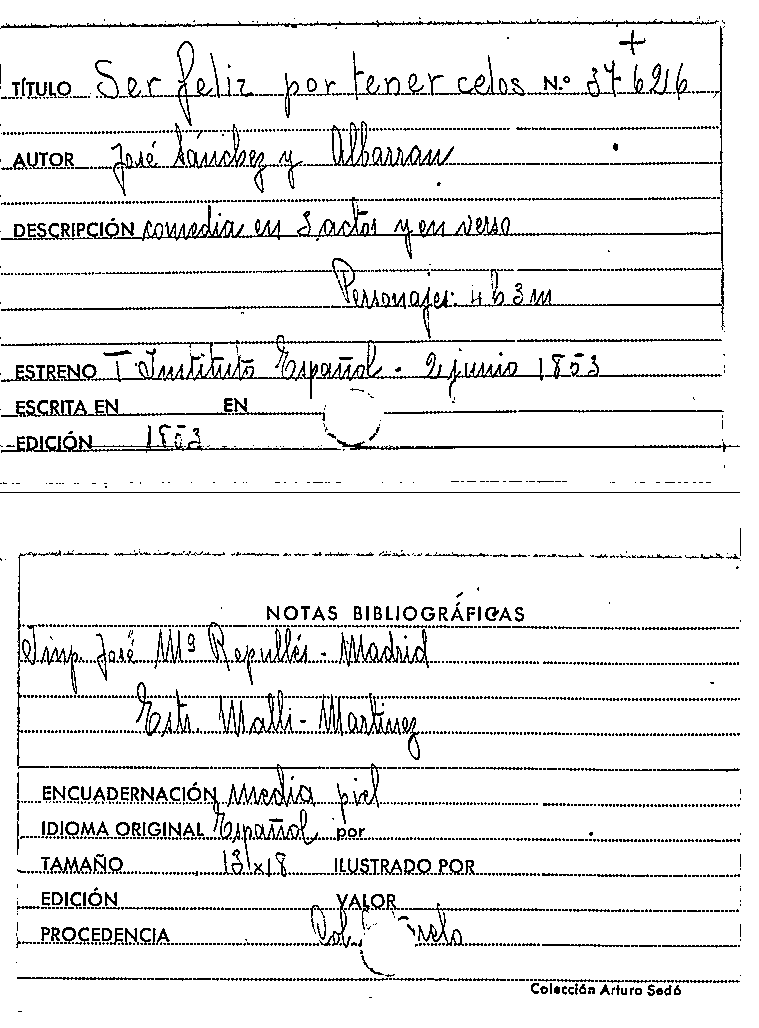 +
TÍTULO Ser feliz por tener celos N.º 37626
AUTOR José Sánchez y Albarran
DESCRIPCIÓN comedia en 3 actos y en verso
Personajes: 4 h 3 m
ESTRENO T. Instituto Español - 2 junio 1853
ESCRITA EN EN
EDICIÓN 1853
NOTAS BIBLIOGRÁFICAS
Imp. José Mª Repullés - Madrid
Estr. Malli - Martinez
ENCUADERNACIÓN media piel
IDIOMA ORIGINAL Español por
TAMAÑO 13x18 ILUSTRADO POR
EDICIÓN VALOR
PROCEDENCIA Col.
Colección Arturo Sedó